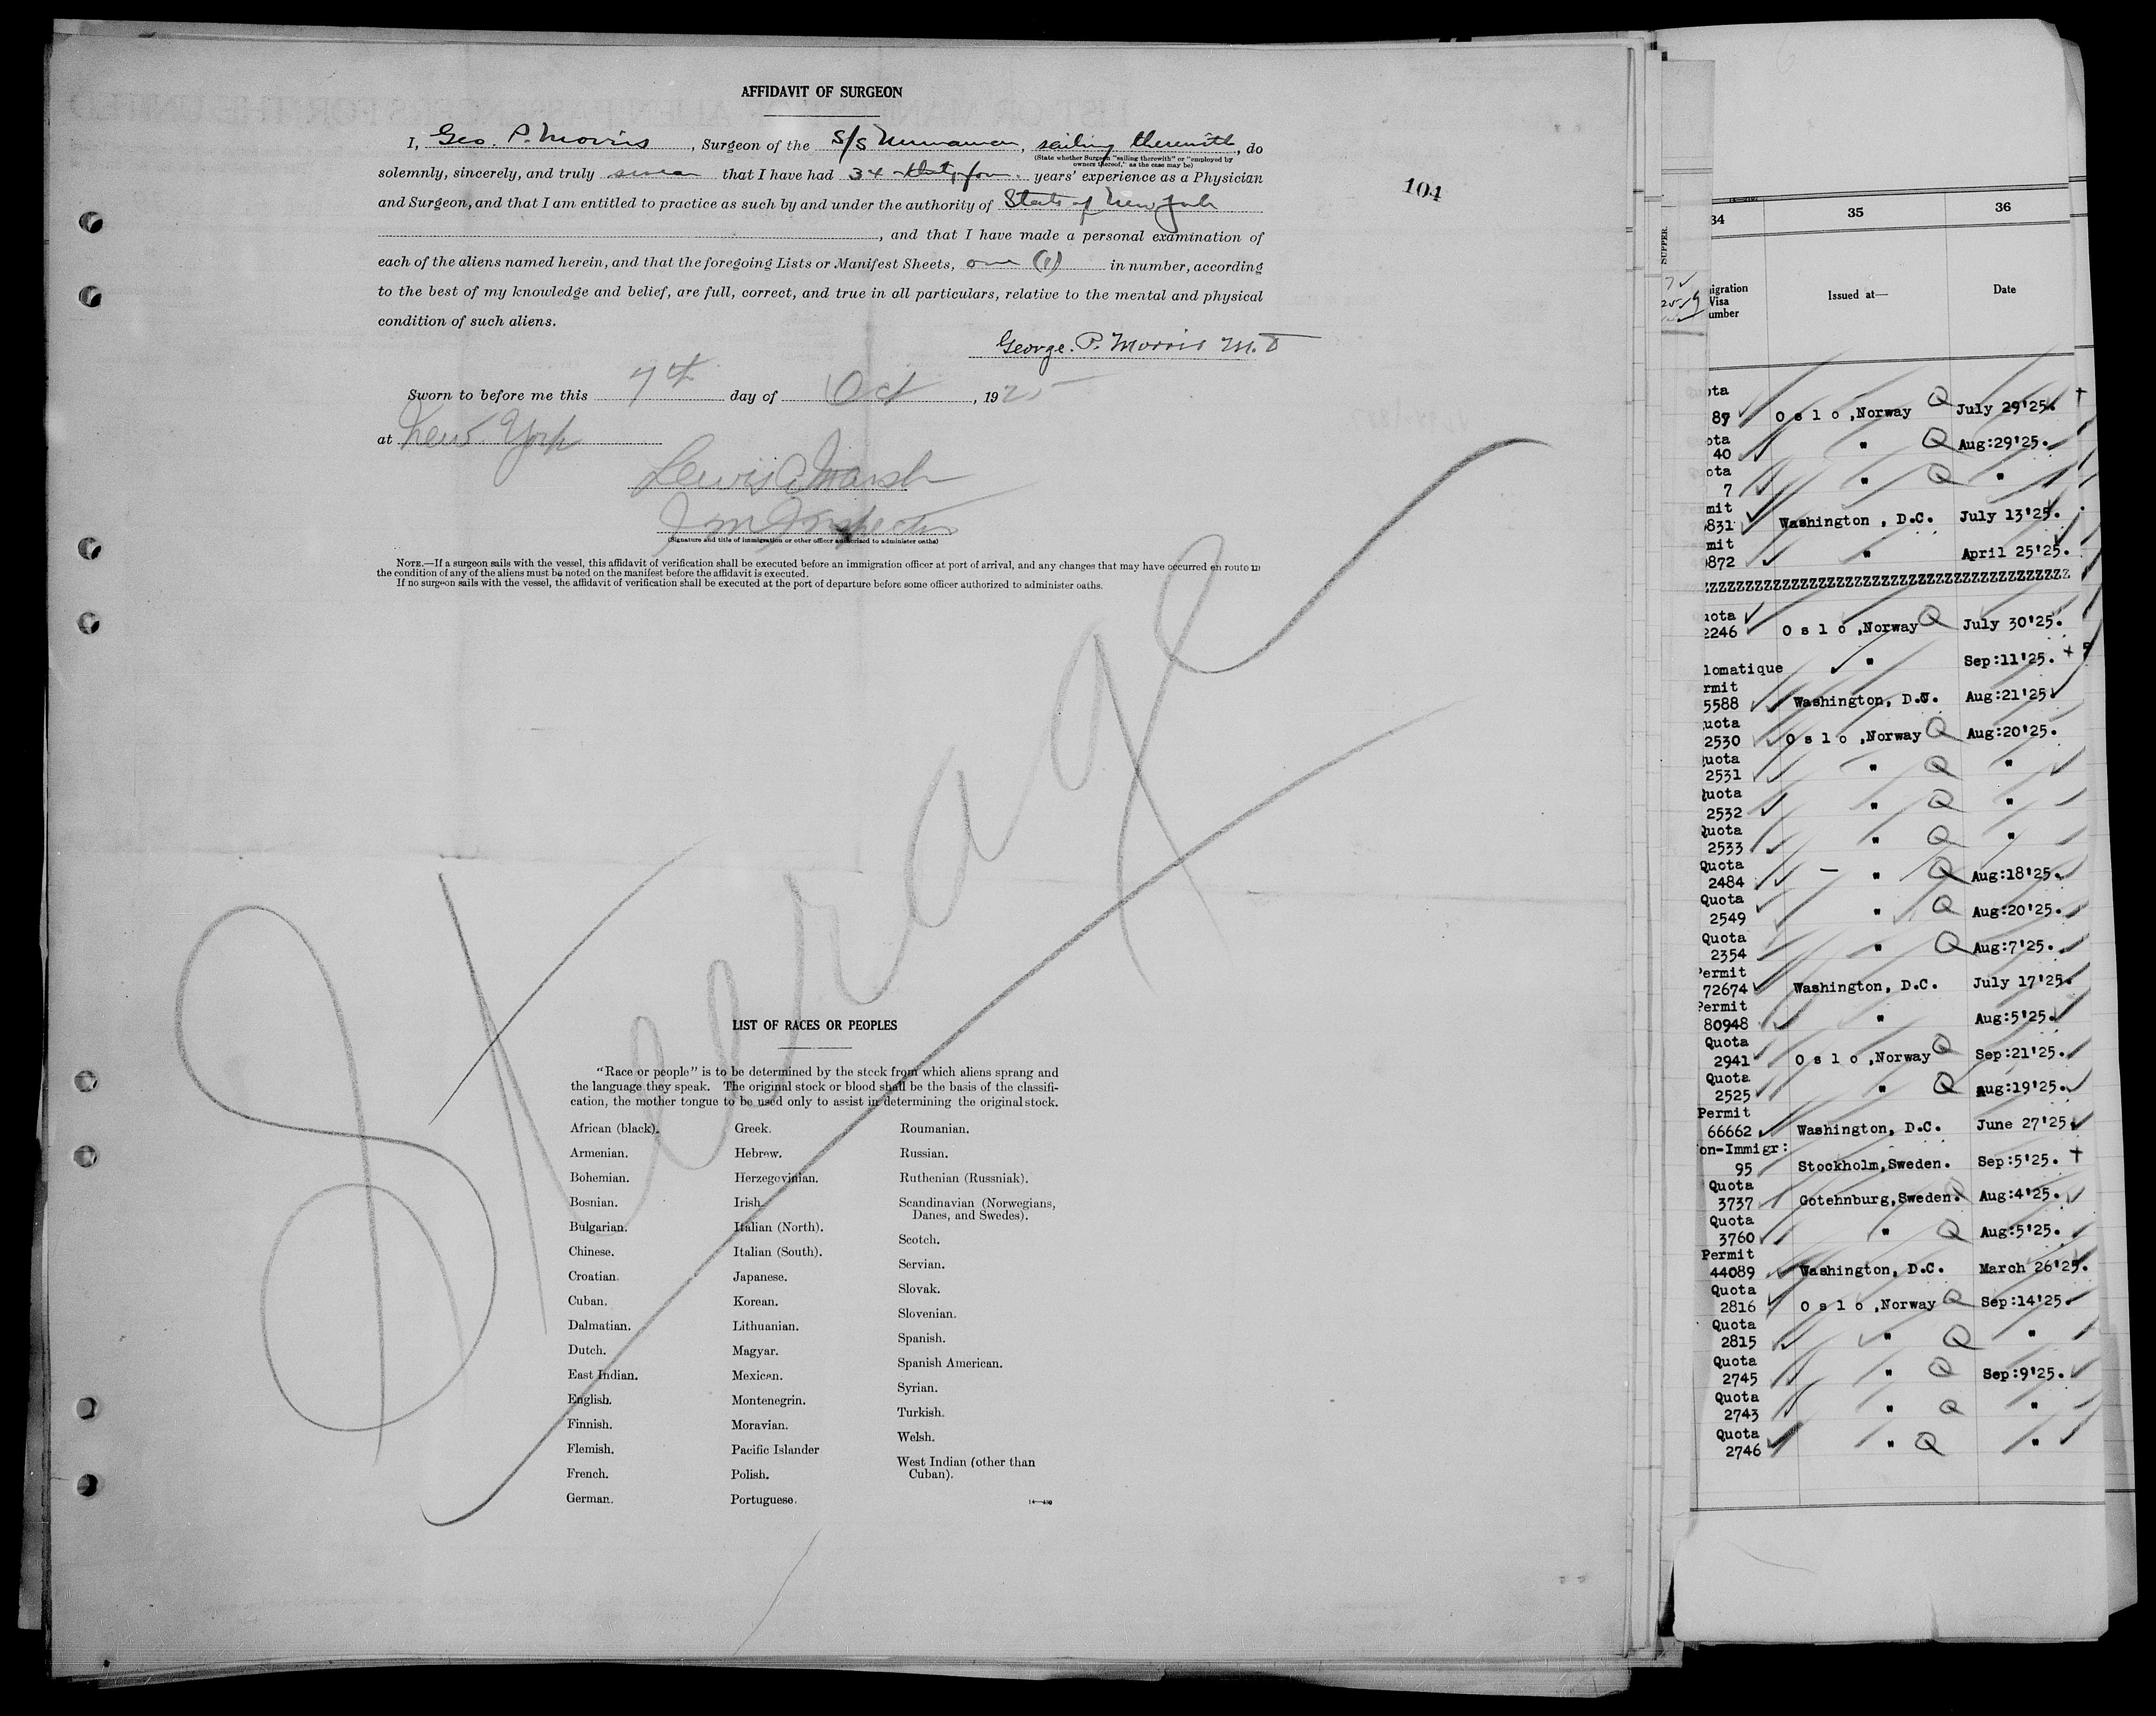 AFFIDAVIT OF SURGEON
I, Geo. P. Morris, Surgeon of the S/S, sailing therewith, do
(State whether Surgeon "sailing therewith" or "employed by
owners thereof," as the case may be)
solemnly, sincerely, and truly swear that I have had 34 thirty four years' experience as a Physician
and Surgeon, and that I am entitled to practice as such by and under the authority of State of New York
, and that I have made a personal examination of
each of the aliens named herein, and that the foregoing Lists or Manifest Sheets, one (1) in number, according
to the best of my knowledge and belief, are full, correct, and true in all particulars, relative to the mental and physical
condition of such aliens.
George. P. Morris M.D
Sworn to before me this 7th day of Oct, 1925
at New York
Lewis A Marsh
Imm Inspector
(Signature and title of immigration or other officer authorized to administer oaths)
NOTE.—If a surgeon sails with the vessel, this affidavit of verification shall be executed before an immigration officer at port of arrival, and any changes that may have occurred en route in
the condition of any of the aliens must be noted on the manifest before the affidavit is executed.
If no surgeon sails with the vessel, the affidavit of verification shall be executed at the port of departure before some officer authorized to administer oaths.
104
Steerage
LIST OF RACES OR PEOPLES
"Race or people" is to be determined by the stock from which aliens sprang and
the language they speak. The original stock or blood shall be the basis of the classifi-
cation, the mother tongue to be used only to assist in determining the original stock.
African (black).
Armenian.
Bohemian.
Bosnian.
Bulgarian.
Chinese.
Croatian.
Cuban.
Dalmatian.
Dutch.
East Indian.
English.
Finnish.
Flemish.
French.
German.
Greek.
Hebrew.
Herzegovinian.
Irish.
Italian (North).
Italian (South).
Japanese.
Korean.
Lithuanian.
Magyar.
Mexican.
Montenegrin.
Moravian.
Pacific Islander
Polish.
Portuguese.
Roumanian.
Russian.
Ruthenian (Russniak).
Scandinavian (Norwegians,
Danes, and Swedes).
Scotch.
Servian.
Slovak.
Slovenian.
Spanish.
Spanish American.
Syrian.
Turkish.
Welsh.
West Indian (other than
Cuban).
SUPPER.
34 35 36
igration
Visa
umber
Issued at—
Date
ota
87 Oslo, Norway Q July 29'25.
ota
40 " Q Aug:29'25.
ota
7 " Q "
mit
831 Washington, D.C. July 13'25.
mit
872 " April 25'25.
ZZZZZZZZZZZZZZZZZZZZZZZZZZZZZZZZZZZZZZZZZZZ
uota
2246 Oslo, Norway Q July 30'25.
lomatique " Sep:11'25.
rmit
5588 Washington, D.C. Aug:21'25
uota
2530 Oslo, Norway Q Aug:20'25.
uota
2531 " Q "
Quota
2532 " Q "
Quota
2533 " Q "
Quota
2484 " Q Aug:18'25.
Quota
2549 " Q Aug:20'25.
Quota
2354 " Q Aug:7'25.
Permit
72674 Washington, D.C. July 17'25.
Permit
80948 " Aug:5'25.
Quota
2941 Oslo, Norway Q Sep:21'25.
Quota
2525 " Q aug:19'25.
Permit
66662 Washington, D.C. June 27'25
on-Immigr:
95 Stockholm, Sweden. Sep:5'25.
Quota
3737 Gotehnburg, Sweden. Aug:4'25.
Quota
3760 " Q Aug:5'25.
Permit
44089 Washington, D.C. March 26'25.
Quota
2816 Oslo, Norway Q Sep:14'25.
Quota
2815 " Q "
Quota
2745 " Q Sep:9'25.
Quota
2743 " Q "
Quota
2746 " Q "